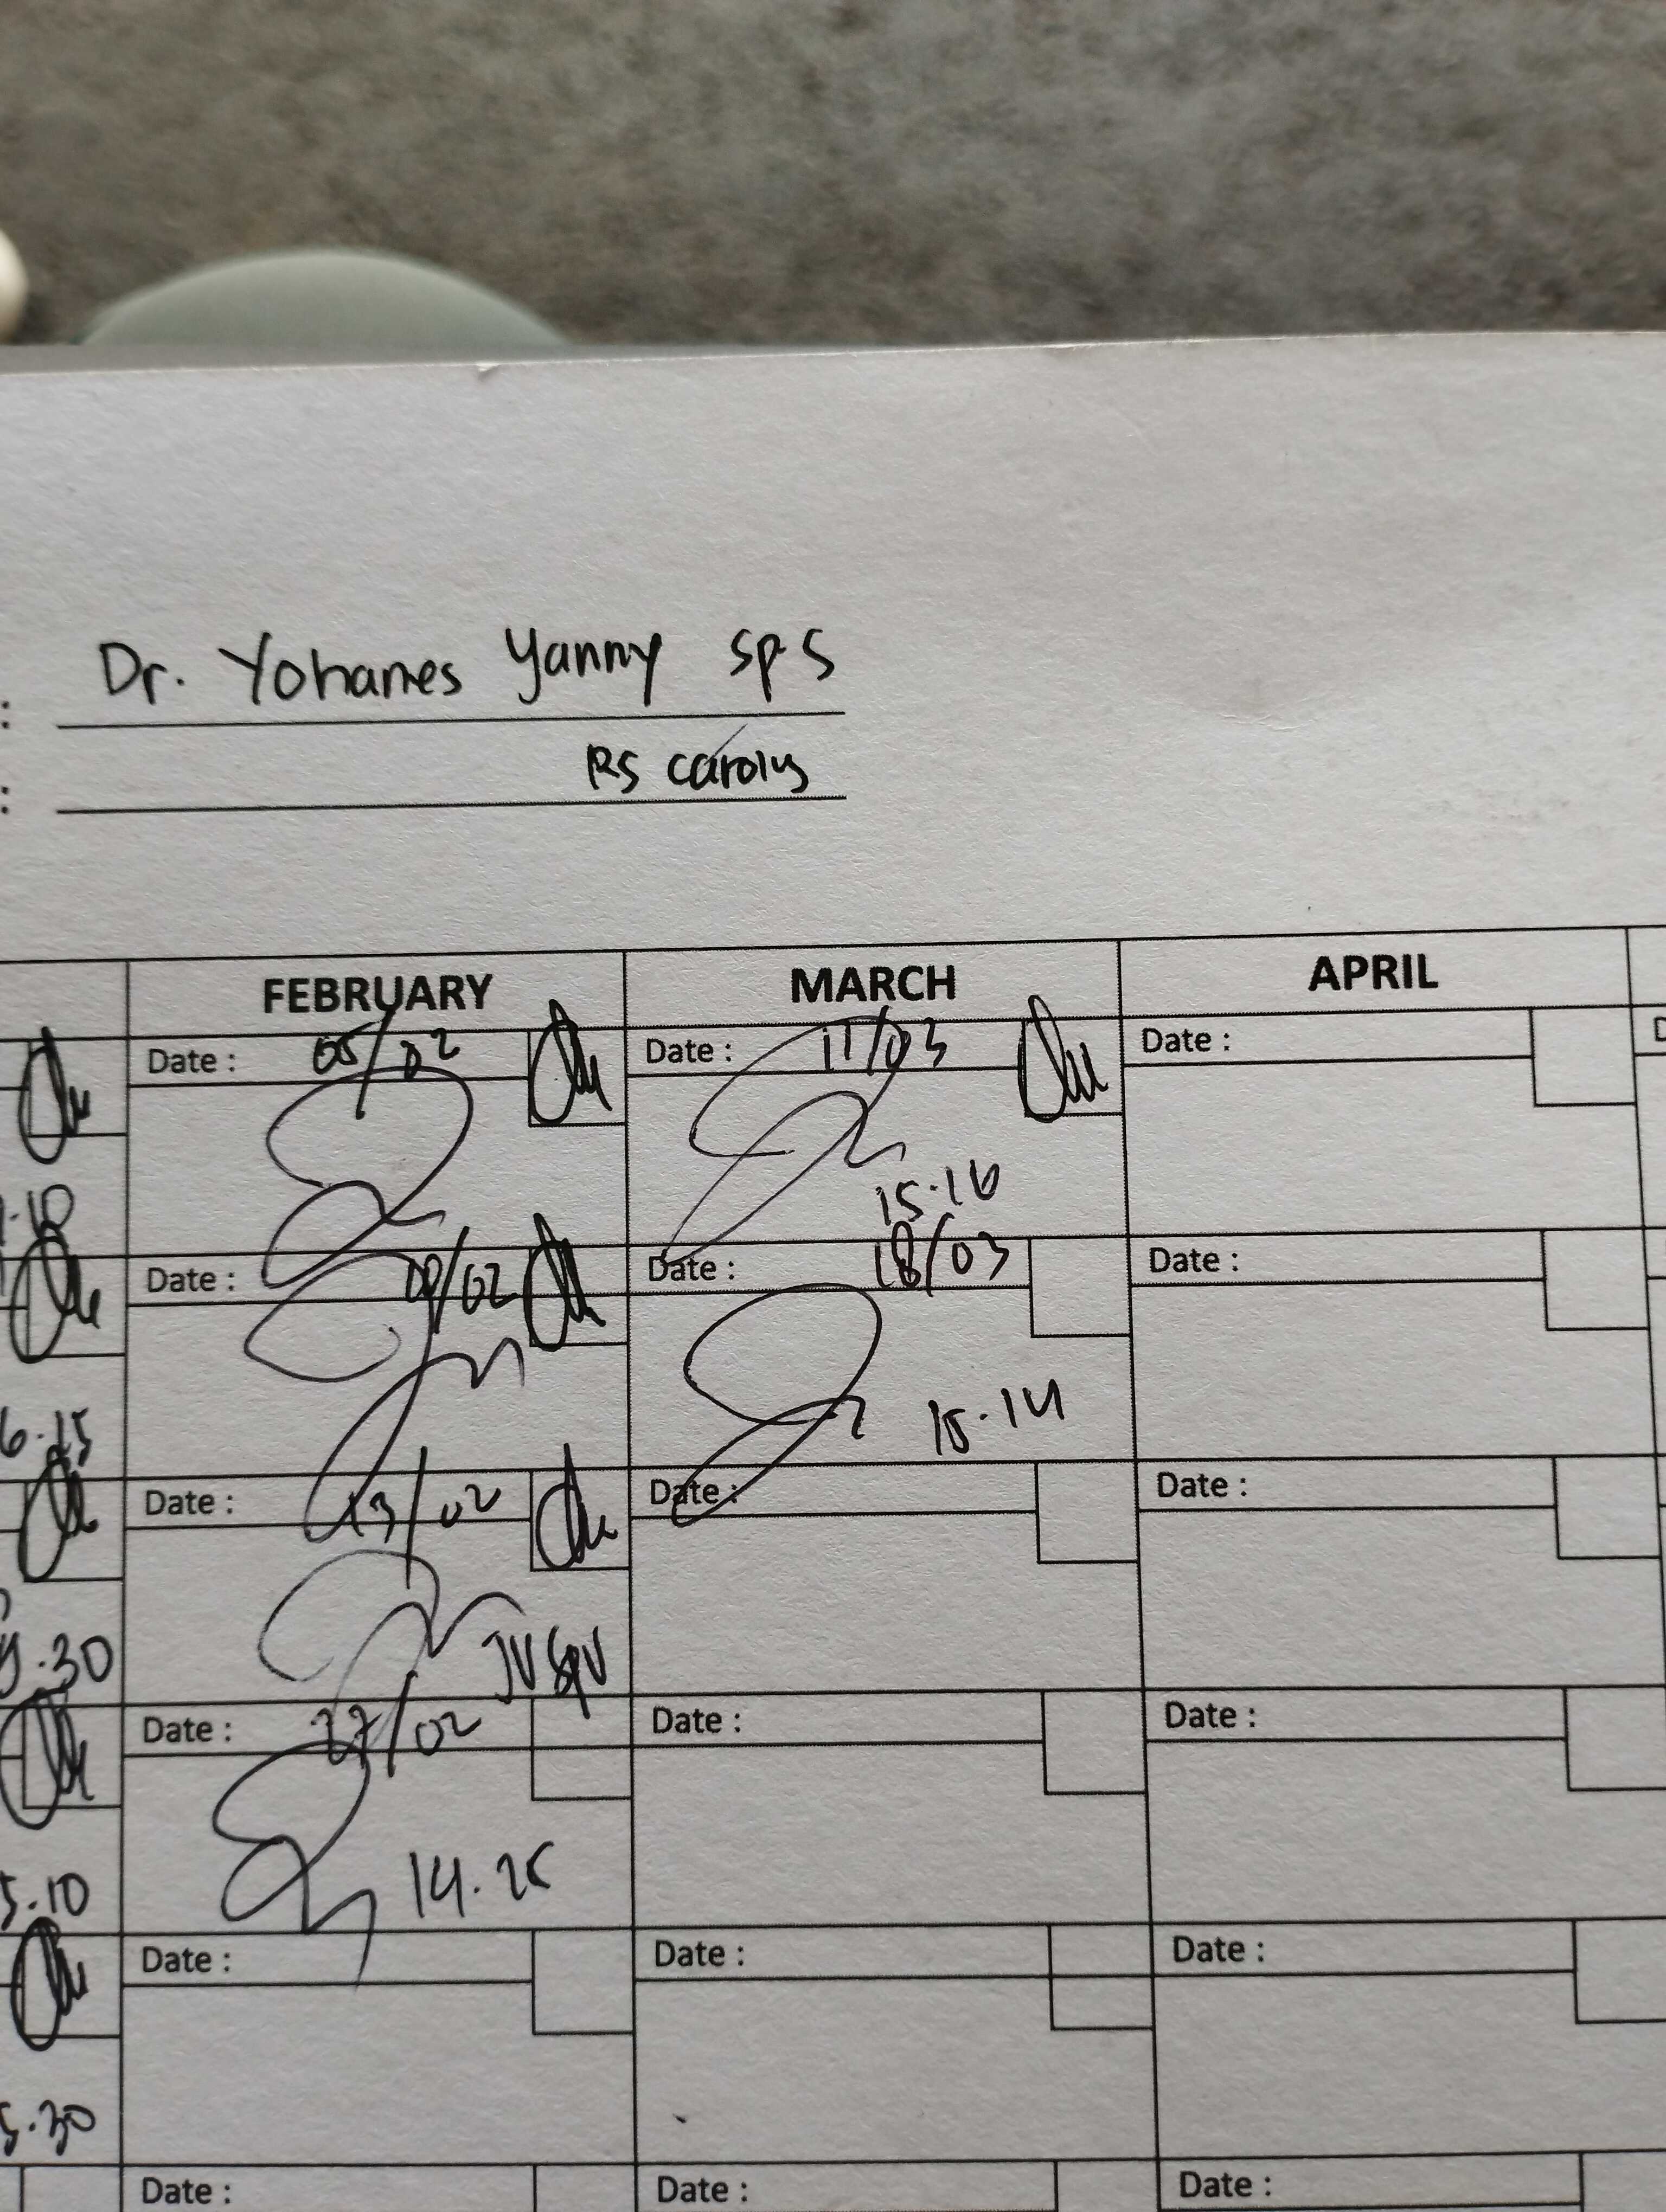 : Dr. Yohanes Yanny Sp S
: RS Carolus
FEBRUARY MARCH APRIL
Date : 05/02 Date : 11/03 Date :
15.16
Date : /02 Date : 18/03 Date :
15.14
Date : 13/02 Date : Date :
JV SPV
.30
Date : 27/02 Date : Date :
5.10 14.25
Date : Date : Date :
5.30
Date : Date : Date :